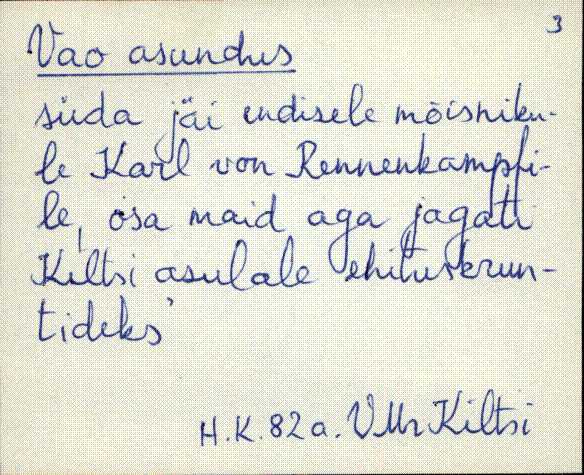 3
Vao asundus
süda jäi endisele mõisniku-
le Karl von Rennenkampfi-
le, osa maid aga jagati
Kiltsi asulale ehituskrun-
tideks
H.K. 82 a. VMr Kiltsi